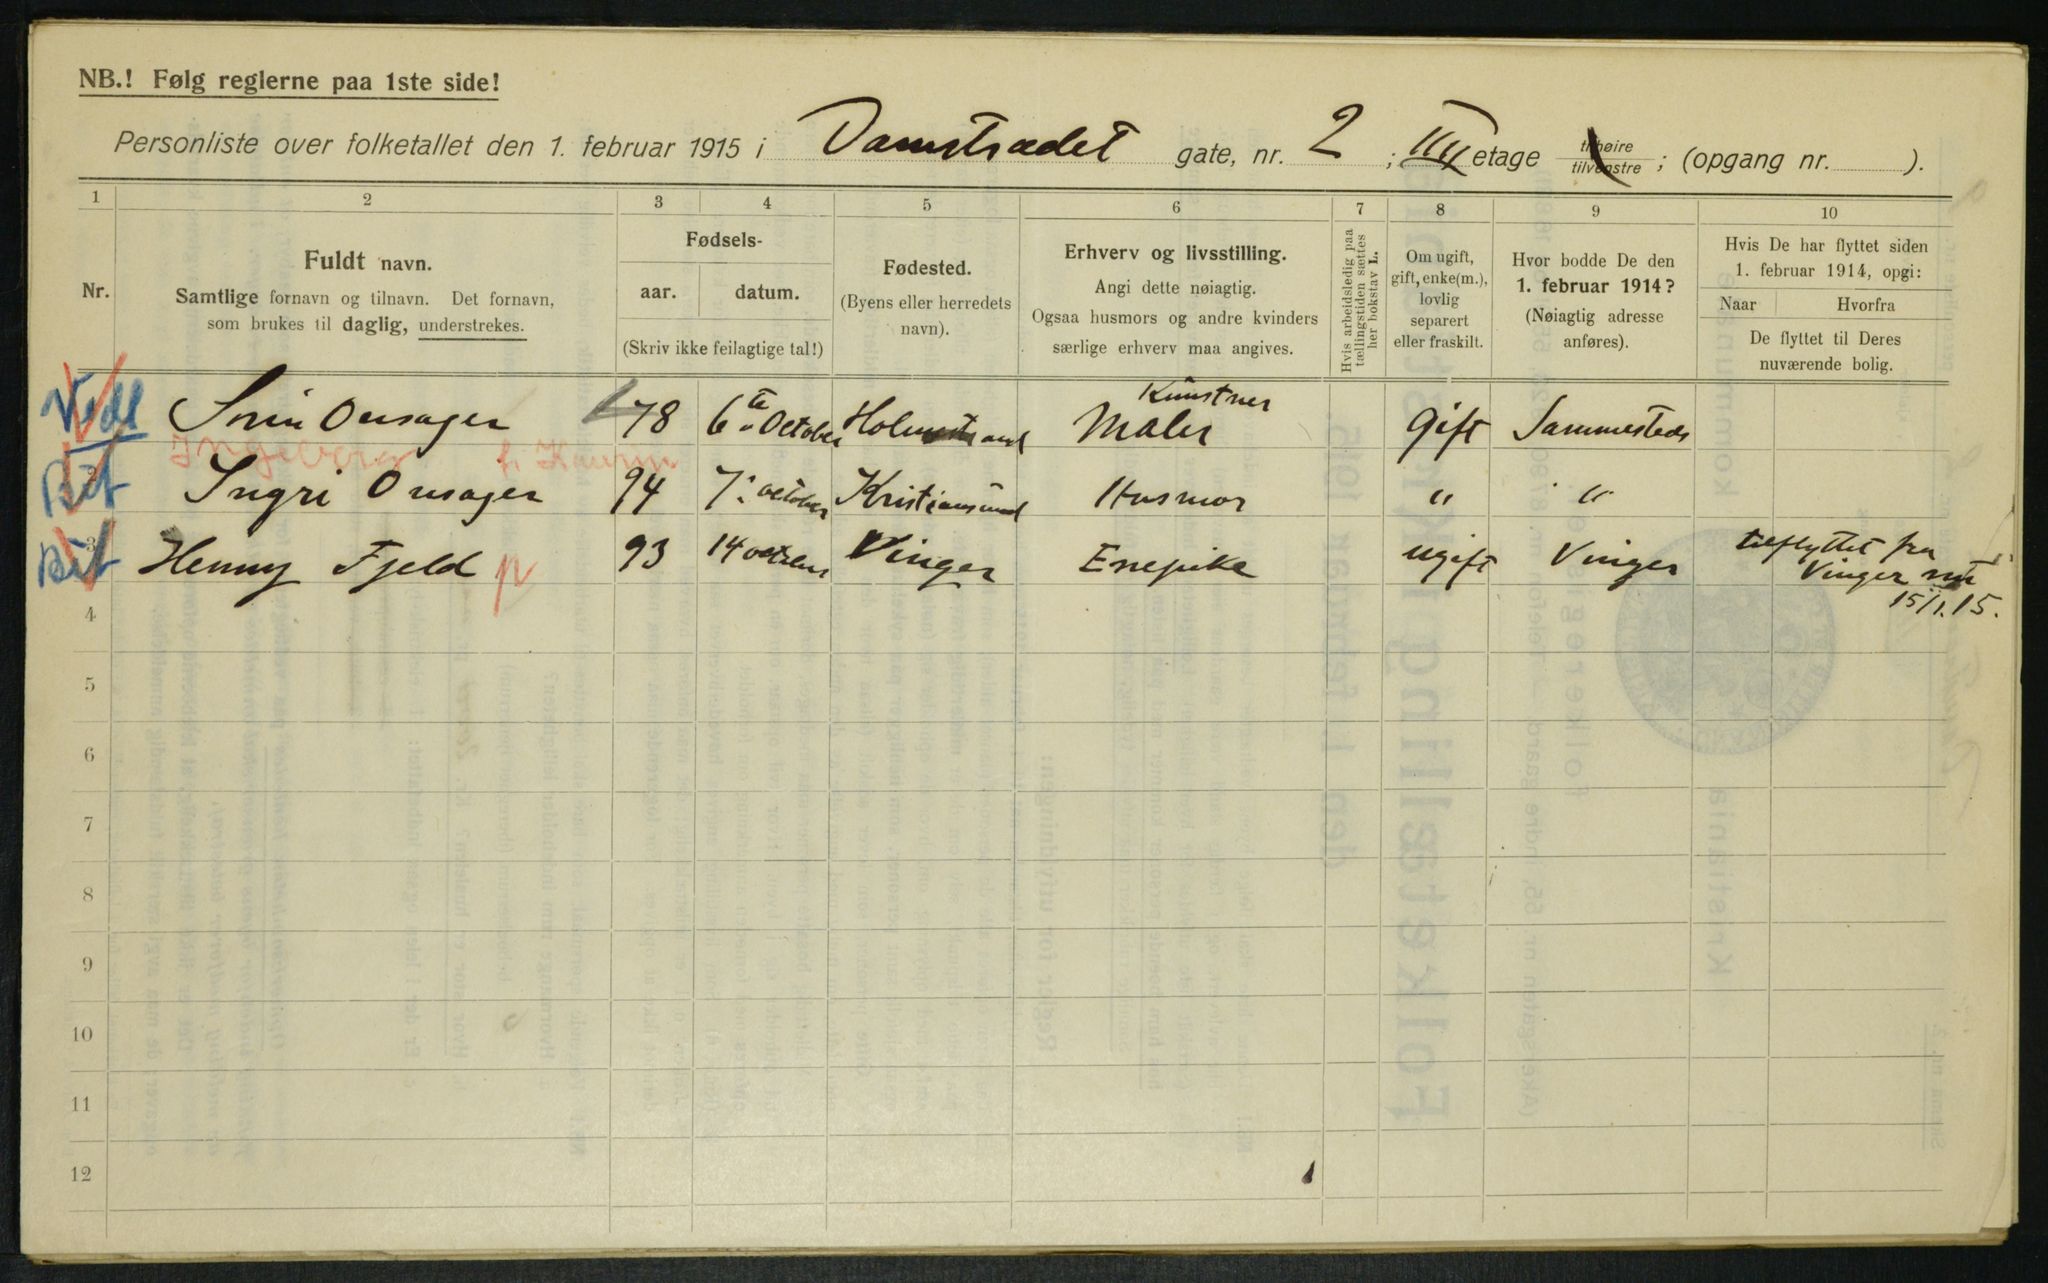 NB.! Følg reglerne paa 1ste side!
Personliste over folketallet den 1. februar 1915 i Damstrædet gate, nr. 2 ; III etage tilhøire tilvenstre ; (opgang nr. ).
1 2 3 4 5 6 7 8 9 10
Nr.
Fuldt navn.
Samtlige fornavn og tilnavn. Det fornavn,
som brukes til daglig, understrekes.
Fødsels-
aar. datum.
(Skriv ikke feilagtige tal!)
Fødested.
(Byens eller herredets
navn).
Erhverv og livsstilling.
Angi dette nøiagtig.
Ogsaa husmors og andre kvinders
særlige erhverv maa angives.
Hvis arbeidsledig paa
tællingstiden sættes
her bokstav L.
Om ugift,
gift, enke(m.),
lovlig
separert
eller fraskilt.
Hvor bodde De den
1. februar 1914?
(Nøiagtig adresse
anføres).
Hvis De har flyttet siden
1. februar 1914, opgi:
Naar Hvorfra
De flyttet til Deres
nuværende bolig.
Kunstner
Sørin Onsager 78 6te October Holmestrand Maler gift Sammesteds
Ingeborg f.
2 Ingri Onsager 94 7. october Kristiansund Husmor " "
3 Henny Fjeld p 93 14 Vinger Enepike ugift Vinger tilflyttet fra
Vinger
15/1.15.
4
5
6
7
8
9
10
11
12